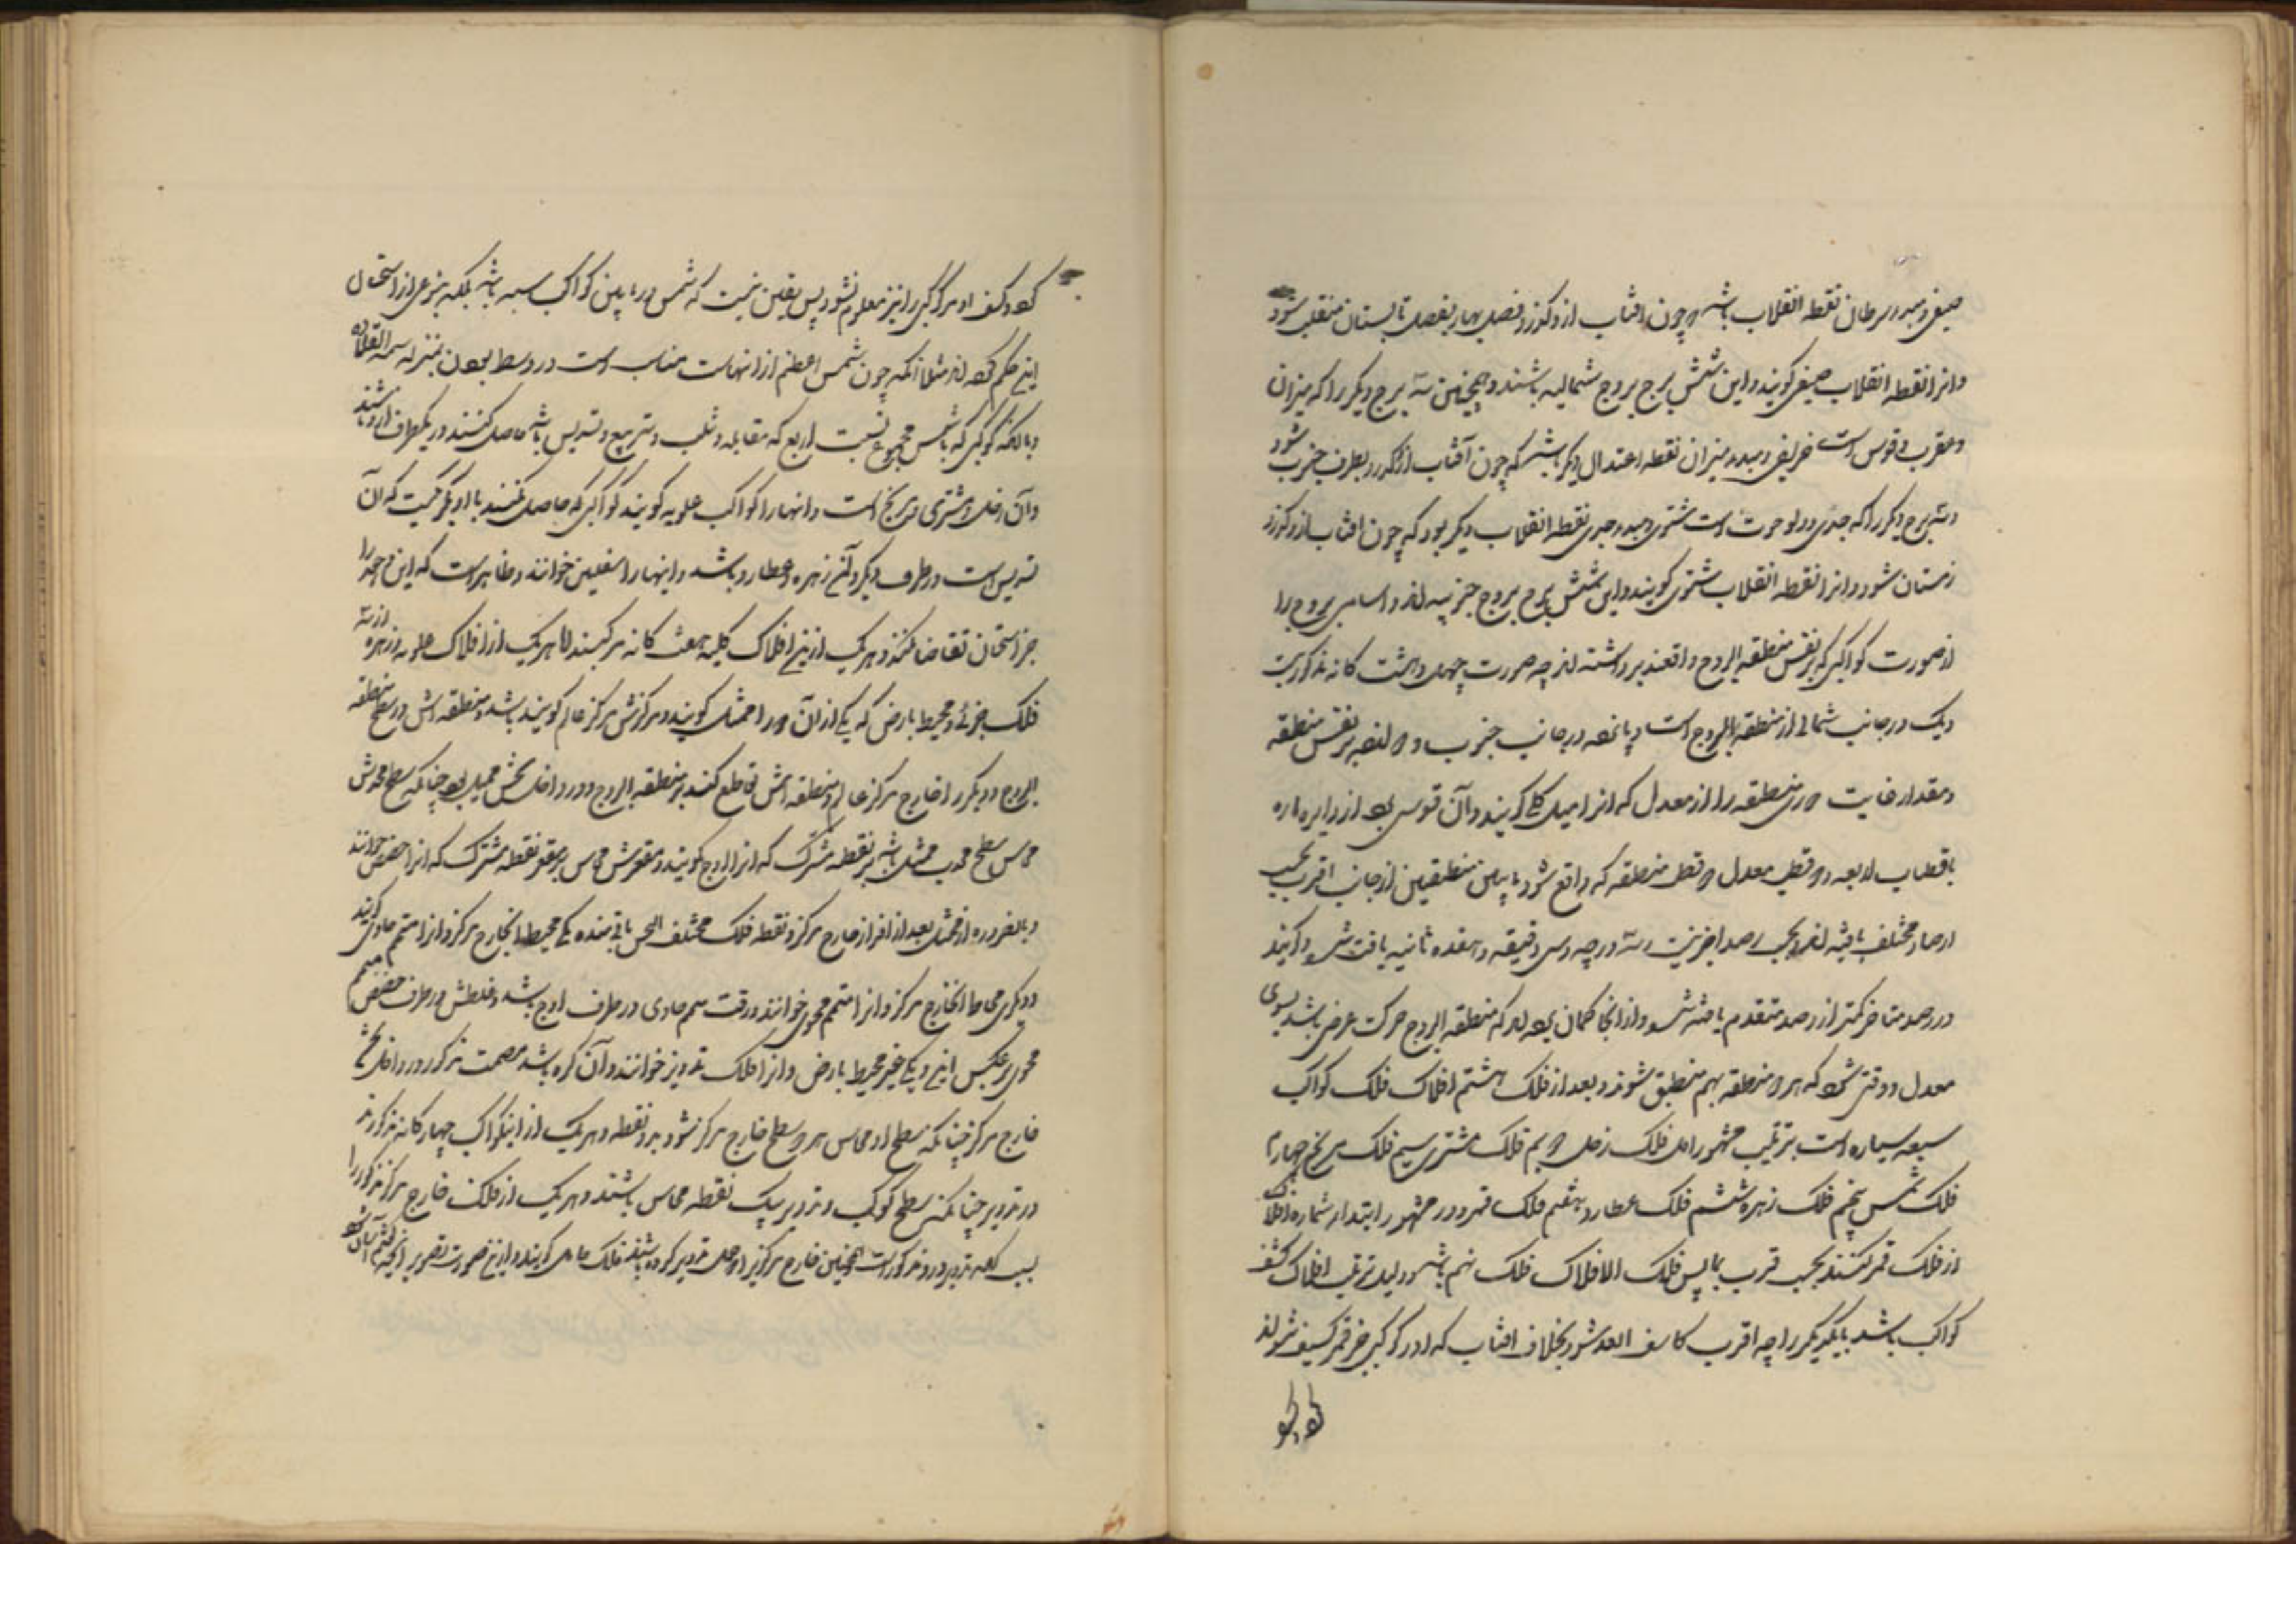 صیفی و مبدء سرطان نقطه انقلاب باشد و چون افتاب ازو کذرد فصل بهار بفصل تابستان منقلب شود
و انرا نقطه انقلاب صیفی کویند و این شش برج بروج شمالیه باشند و همچنین سه برج دیکر را که میزان
و عقرب و قوس است خریفی و مبدء میزان نقطه اعتدال دیکر باشد که چون آفتاب ازو کذرد بطرف جنوب شود
و سه برج دیکر را که جدی و دلو و حوت است شتوی و مبدء جدی نقطه انقلاب دیکر بود که چون افتاب ازو کذرد
زمستان شود و انرا نقطه انقلاب شتوی کویند و این شش برج بروج جنوبیه اند و اسامی بروج را
از صورت کواکبی که بر نفس منطقه البروج واقعند برداشته اند چه صورت چهل و هشت کانه مذکور بیست
و یک در جانب شمالی از منطقة البروج است و پانزده در جانب جنوب و دوازده بر نفس منطقه
و مقدار غایت دوری منطقه را از معدل که انرا میل کلی کویند و آن قوسی بود از دایره ماره
باقطاب اربعه دو قطب معدل و دو قطب منطقه که واقع شود مابین منطقتین از جانب اقرب بحسب
ارصاد مختلف یافته اند و بحسب رصد اخر بیست و سه درجه و سی دقیقه و هفده ثانیه یافت شد و کویند
در رصد متاخر کمتر از رصد متقدم یافته شد و از انجا کمان برده اند که منطقه البروج حرکت عرضی باشد بسوی
معدل و وقتی شود که هر دو منطقه بهم منطبق شوند و بعد از فلک هشتم افلاک فلک کواکب
سبعه سیاره است بترتیب مشهور اول فلک زحل دویم فلک مشتری سیم فلک مریخ چهارم
فلک شمس پنجم فلک زهره ششم فلک عطارد هفتم فلک قمر و در مشهور ابتداء شماره افلاک
از فلک قمر کنند بحسب قرب بما پس فلک الافلاک فلک نهم باشد و دلیل ترتیب افلاک کسف
کواکب باشد یکدیکر را چه اقرب کاسف ابعد شود بخلاف افتاب که اورا کوکبی جز قمر کسف نتواند
کرد و کسف
کرد و کسف او مر کوکبی را نیز معلوم نشود پس یقین نیست که شمس در مابین کواکب سبعه باشد بلکه بنوعی از استحسان
این حکم کرده اند مثلا آنکه چون شمس اعظم از انهاست مناسب است در وسط بودن بمنزله شمسة القلاده
و بانکه کوکبی که با شمس مجموع نسبت اربع که مقابله و تثلیث و تربیع و تسدیس باشد حاصل کنند در یکطرف او باشند
و آن زحل و مشتری و مریخ است و انهارا کواکب علویه کویند و کواکبی که حاصل نکنند با او مکر نسبت که آن
تسدیس است در طرف دیکر و آن زهره و عطارد باشد و اینهارا سفلیین خوانند و ظاهر است که این وجوه را
جز استحسان تقاضا نکند و هر یک ازین افلاک کلیه هفت کانه مرکبند اما هر یک از افلاک علویه و زهره از سه
فلک جزئی و محیط بارض که یکی از آن دو را ممثل کویند و مرکزش مرکز عالم کویند باشد و منطقه اش در سطح منطقه
البروج و دیکر را خارج مرکز عالم و منطقه اش تقاطع کند بر منطقه البروج و در داخل ثخنش ممثل بود چنانکه سطح محدبش
مماس سطح محدب ممثل باشد بر نقطه مشترک که انرا اوج کویند و مقعرش مماس مقعر بر نقطه مشترک که انرا حضیض خوانند
و بالضرورة از ممثل بعد از افراز خارج مرکز دو نقطه فلک مختلف الثخن باقی ماند یکی محیط بخارج مرکز و انرا متمم حاوی کویند
و دیکری محاط بخارج مرکز و انرا متمم محوی خوانند و رقت متمم حاوی در طرف اوج باشد و غلظش در طرف حضیض و متمم
محوی برعکس این و یکی غیر محیط بارض و انرا فلک تدویر خوانند و آن کره باشد مصمت مرکوز در داخل ثخن
خارج مرکز چنانکه سطح او مماس هر دو سطح خارج مرکز شود بر دو نقطه و هر یک از این کواکب چهار کانه مرکوزند
در تدویر چنانکه سطح کوکب و تدویر بیک نقطه مماس باشند و هر یک از فلک خارج مرکز مذکور را
بسبب آنکه تدویر درو مرکوز است و همچنین خارج مرکزی را که حامل تدویر کرده باشند فلک حامل کویند و ازین صورت تصویر